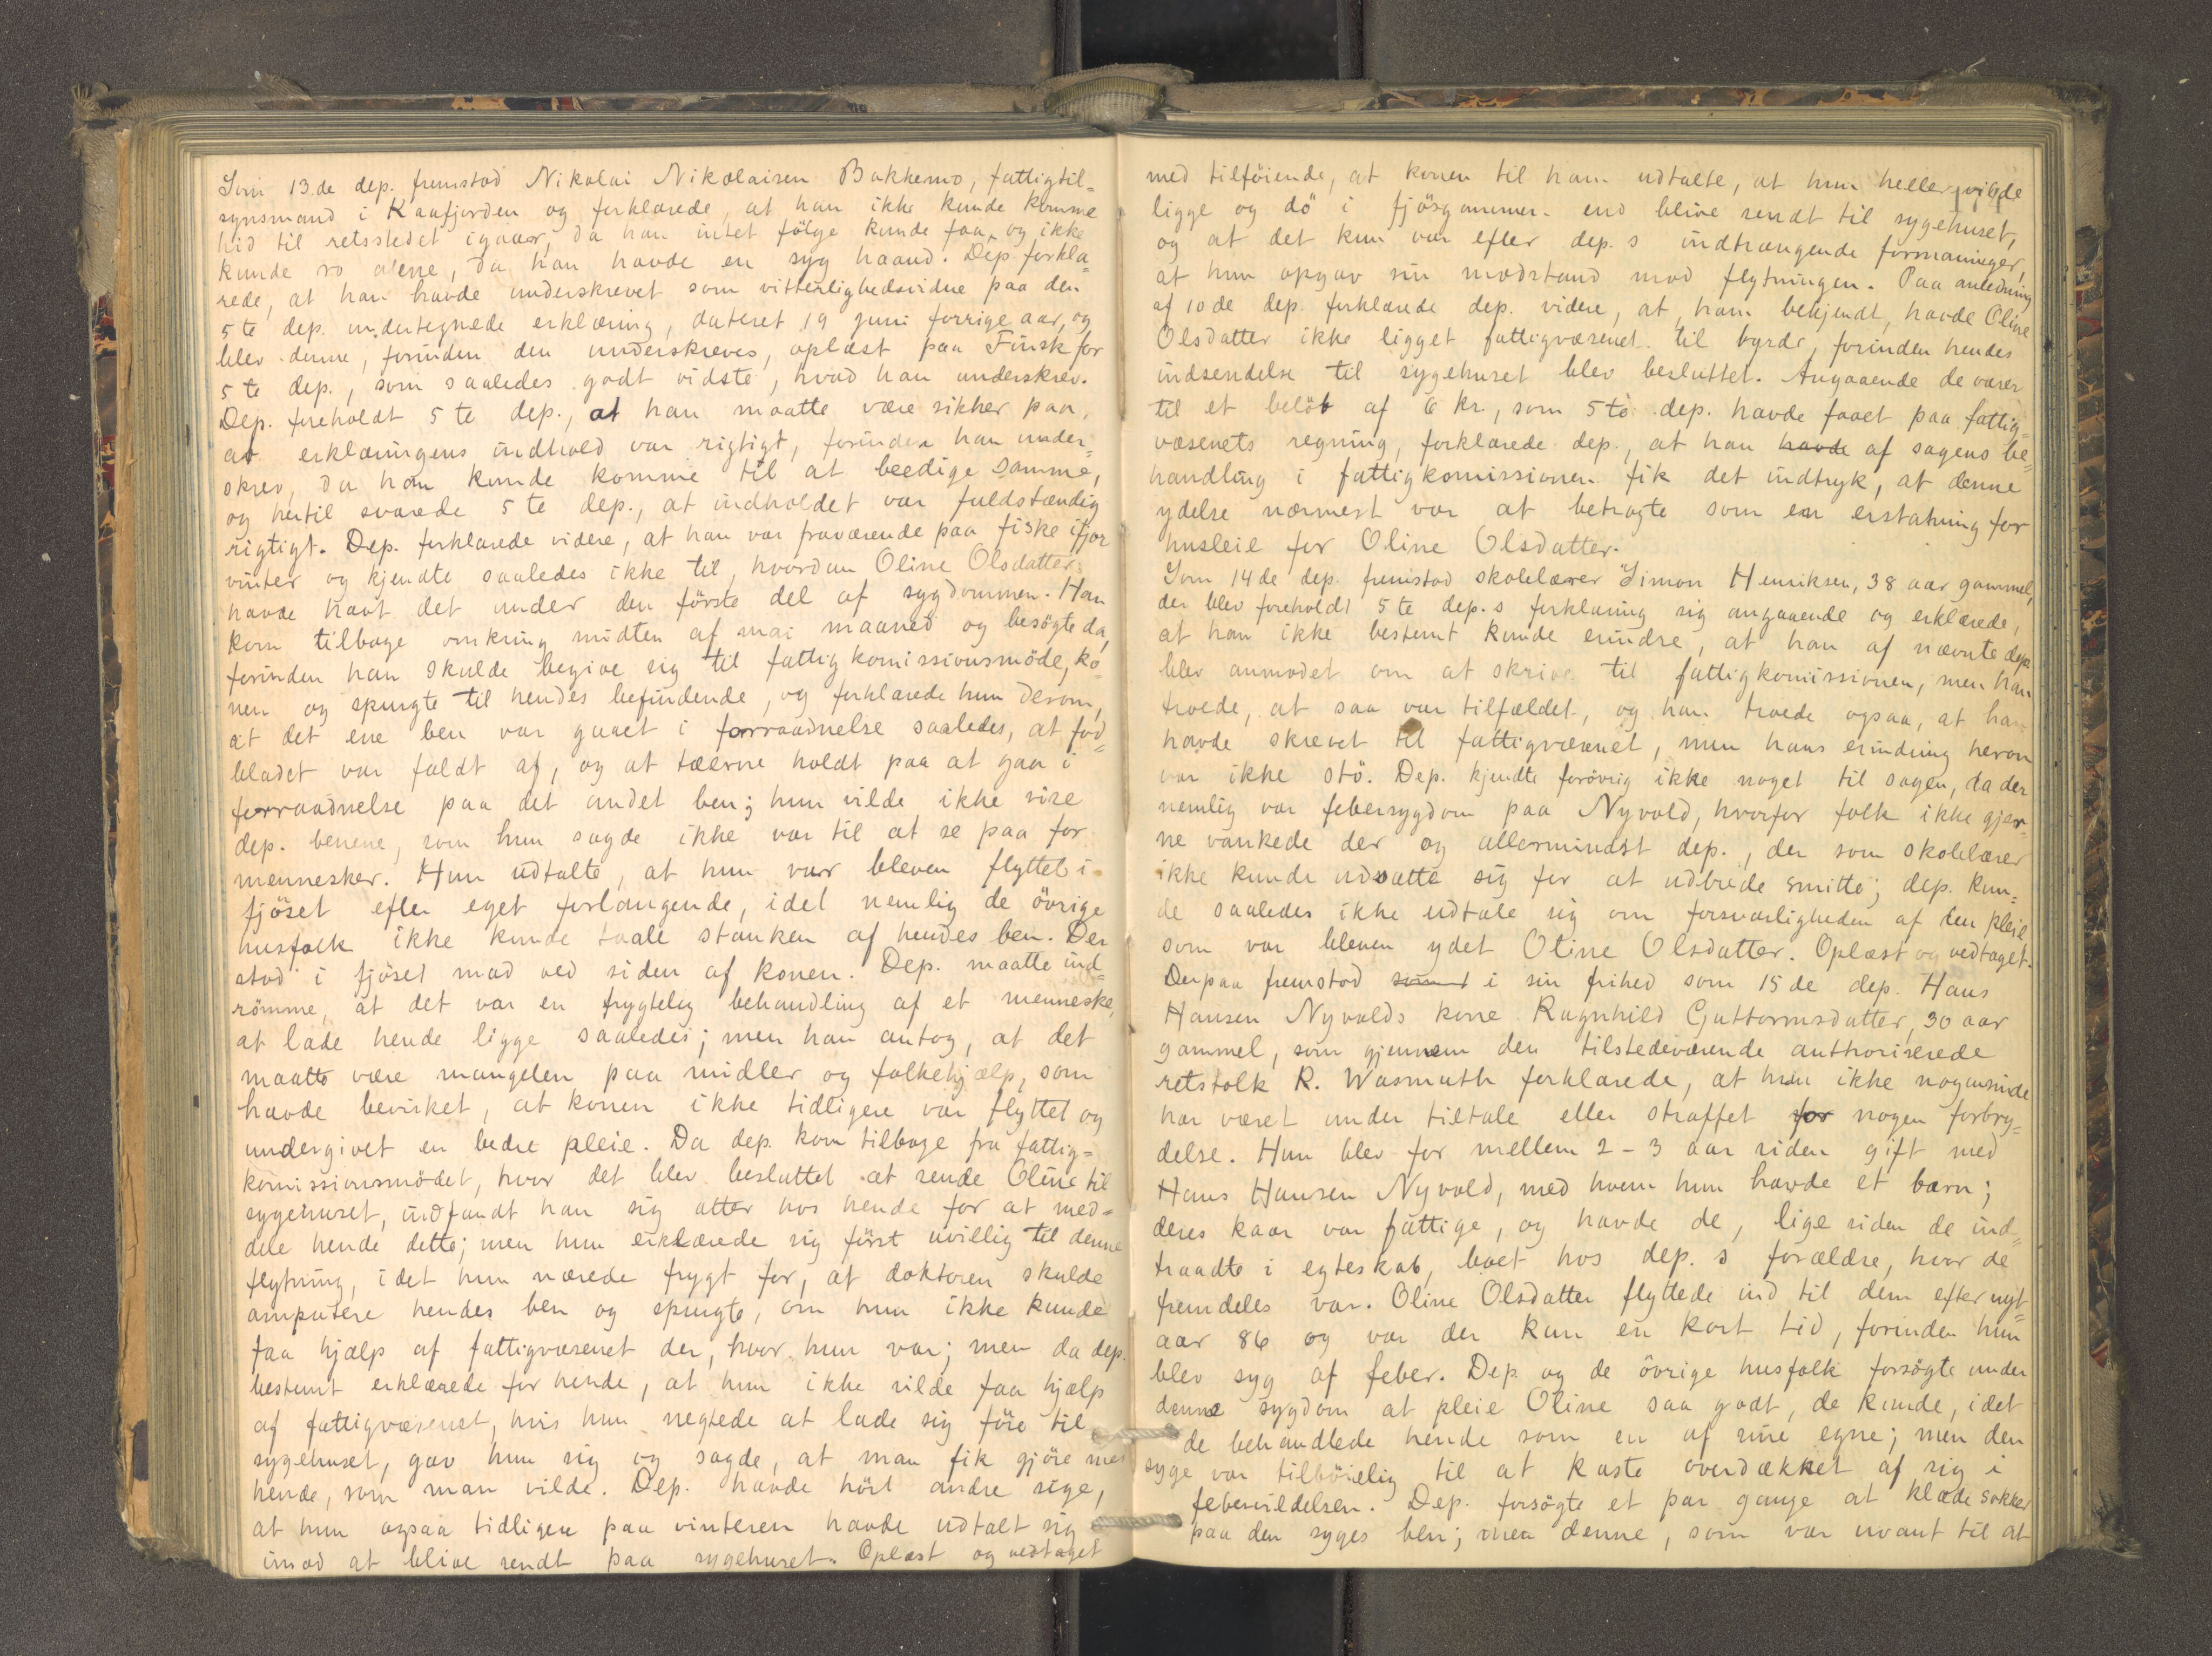 Som 13de dep. fremstod Nikolai Nikolaisen Bakkemo, fattigtil=
synsmand i Kaafjorden og forklarede, at han ikke kunde komme
hid til retsstedet igaar, da han intet følge kunde faa, og ikke
kunde ro alene, da han havde en syg haand. Dep. forkla=
rede, at han havde underskrevet som vitterlighedsvidne paa den
5te dep. undertegnede erklæring, dateret 19 juni forrige aar, og
blev denne, forinden den underskreves, oplæst paa Finsk for
5te dep., som saaledes godt vidste, hvad han underskrev.
Dep. foreholdt 5te dep., at han maatte være sikker paa,
at erklæringens indhold var rigtigt, forinden han under=
skrev, da han kunde komme til at beedige samme,
og hertil svarede 5te dep., at indholdet var fuldstændig
rigtigt. Dep. forklarede videre, at han var fraværende paa fiske ifjor
vinter og kjendte saaledes ikke til, hvordan Oline Olsdatter
havde havt det under den første del af sygdommen. Han
kom tilbage omkring midten af mai maaned og besøgte da,
forinden han skulde begive sig til fattigkomissionsmøde, ko=
nen og spurgte til hendes befindende, og forklarede hun derom,
at det ene ben var gaaet i forraadnelse saaledes, at fod=
bladet var faldt af, og at tæerne holdt paa at gaa i
forraadnelse paa det andet ben; hun vilde ikke vise
dep. benene, som hun sagde ikke var til at se paa for
mennesker. Hun udtalte, at hun var bleven flyttet i
fjøset efter eget forlangende, idet nemlig de øvrige
husfolk ikke kunde taale stanken af hendes ben. Der
stod i fjøset mad ved siden af konen. Dep. maatte ind=
rømme, at det var en frygtelig behandling af et menneske,
at lade hende ligge saaledes; men han antog, at det
maatte være mangelen paa midler og folkehjælp, som
havde bevirket, at konen ikke tidligere var flyttet og
undergivet en bedre pleie. Da dep. kom tilbage fra fattig=
komissionsmødet, hvor det blev besluttet at sende Oline til
sygehuset, indfandt han sig atter hos hende for at med=
dele hende dette; men hun erklærede sig først uvillig til denne
flytning, idet hun nærede frygt for, at doktoren skulde
amputere hendes ben og spurgte, om hun ikke kunde
faa hjælp af fattigvæsenet der, hvor hun var; men da dep.
bestemt erklærede for hende, at hun ikke vilde faa hjælp
af fattigvæsenet, hvis hun negtede at lade sig føre til
sygehuset, gav hun sig og sagde, at man fik gjøre med
hende, som man vilde. Dep. havde hørt andre sige,
at hun ogsaa tidligere paa vinteren havde udtalt sig
imod at blive sendt paa sygehuset. Oplæst og vedtaget
med tilføiende, at konen til ham udtalte, at hun heller vilde
ligge og dø i fjøsgammen end blive sendt til sygehuset,
og at det kun var efter dep.s indtrængende formaninger,
at hun opgav sin modstand mod flytningen. Paa anledning
af 10de dep. forklarede dep. videre, at, ham bekjendt, havde Oline
Olsdatter ikke ligget fattigvæsenet til byrde, forinden hendes
indsendelse til sygehuset blev besluttet. Angaaende de varer
til et beløb af 6 kr., som 5te dep. havde faaet paa fattig=
væsenets regning, forklarede dep., at han havde af sagens be=
handling i fattigkomissionen fik det indtryk, at denne
ydelse nærmest var at betragte som en erstatning for
husleie for Oline Olsdatter.
Som 14de dep. fremstod skolelærer Simon Henriksen, 38 aar gammel,
der blev foreholdt 5te dep.s forklaring sig angaaende og erklærede,
at han ikke bestemt kunde erindre, at han af nævnte dep.
blev anmodet om at skrive til fattigkomissionen, men han
troede, at saa var tilfældet, og han troede ogsaa, at han
havde skrevet til fattigvæsenet, men hans erindring herom
var ikke stø. Dep. kjendte forøvrig ikke noget til sagen, da der
nemlig var febersygdom paa Nyvold, hvorfor folk ikke gjer=
ne vankede der og allermindst dep., der som skolelærer
ikke kunde udsætte sig for at udbrede smitte; dep. kun=
de saaledes ikke udtale sig om forsvarligheden af den pleie
som var bleven ydet Oline Olsdatter. Oplæst og vedtaget.
Derpaa fremstod som i sin frihed som 15de dep. Hans
Hansen Nyvolds kone Ragnhild Guttormsdatter, 30 aar
gammel, som gjennem den tilstedeværende authoriserede
retstolk R. Wasmuth forklarede, at hun ikke nogensinde
har været under tiltale eller straffet for nogen forbry=
delse. Hun blev for mellem 2-3 aar siden gift med
Hans Hansen Nyvold, med hvem hun havde et barn;
deres kaar var fattige, og havde de, lige siden de ind=
traadte i egteskab, boet hos dep.s forældre, hvor de
fremdeles var. Oline Olsdatter flyttede ind til dem efter nyt=
aar 86 og var der kun en kort tid, forinden hun
blev syg af feber. Dep. og de øvrige husfolk forsøgte under
denne sygdom at pleie Oline saa godt, de kunde, idet
de behandlede hende som en af sine egne; men den
syge var tilbøielig til at kaste overdækket af sig i
febervildelsen. Dep. forsøgte et par gange at klæde sokker
paa den syges ben; men denne, som var uvant til at